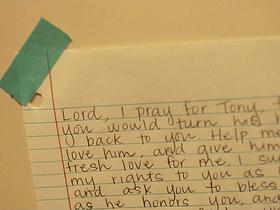 Lord, I pray for Tony.
you would turn his h
back to you. Help me
love him, and give him
fresh love for me. I su
my rights to you as
and ask you to bless
as he honors you, an